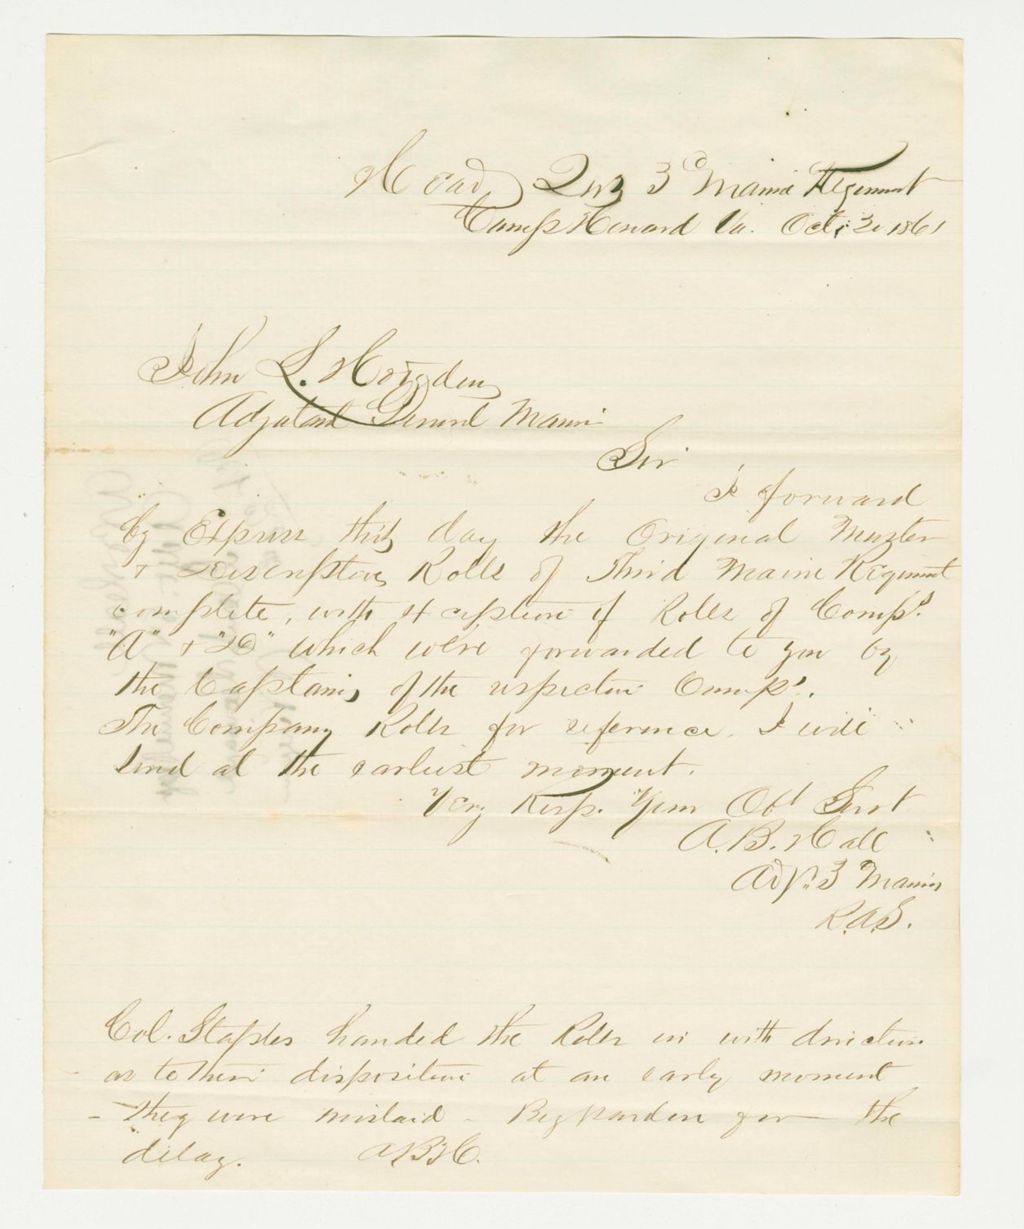 Head Qurs 3d Maine Regiment
Camp Howard Va. Oct. 1861
John L. Hodgdon
Adjutant General Maine
Sir
I forward
by Express this day the Original Muster
+ Descriptive Rolls of Third Maine Regiment
complete, with exception of Rolls of Comps.
"A" + "D" which were forwarded to you by
the Captains of the respective Comps.
The Company Rolls for reference, I will
send at the earliest moment.
Very Resp. Your Obt Servt
A.B. Hall
Adjt. 3 Maine
Col. Staples handed the Rolls in with direction
as to their disposition at an early moment
- they were mislaid - Beg pardon for the
delay. ABH.